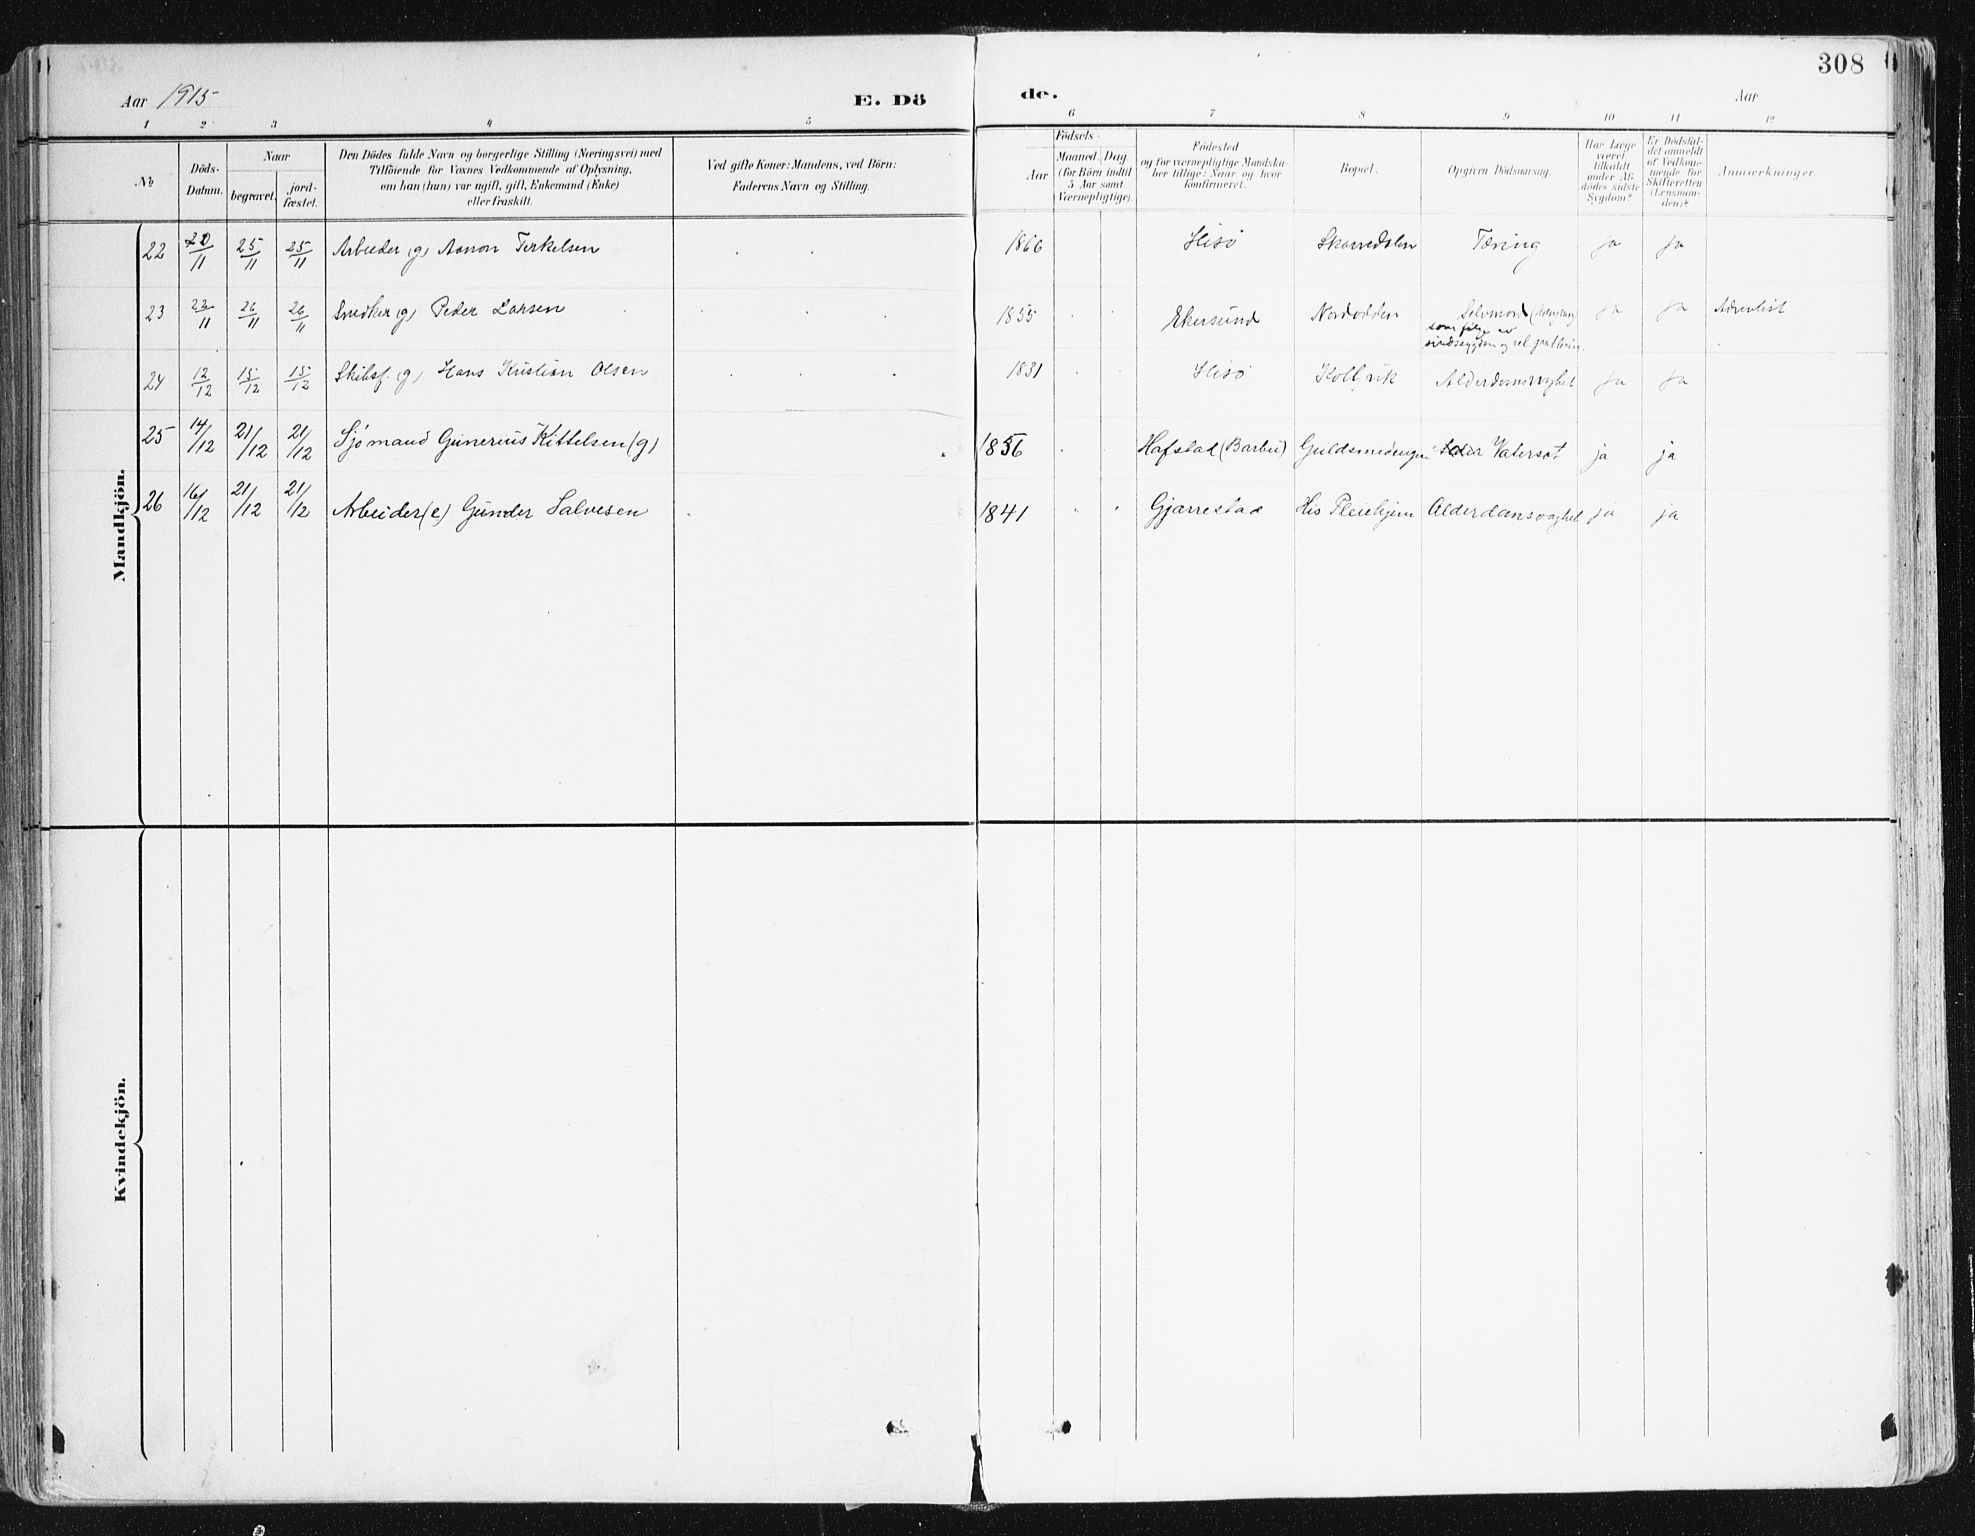 308
Aar 1915 E. Dö de. Aar
1 2 3 4 5 6 7 8 9 10 11 12
No
Döds-
Datum.
Naar
begravet.
jord-
fæstet.
Den Dödes fulde Navn og borgerlige Stilling (Næringsvei) med
Tilföiende for Voxnes Vedkommende af Oplysning,
om han (hun) var ugift, gift, Enkemand (Enke)
eller fraskilt.
Ved gifte Koner: Mandens, ved Börn:
Faderens Navn og Stilling.
Födsels-
Aar
Maaned. Dag
(for Börn indtil
5 Aar samt
Værnepligtige).
Födested
og for værnepligtige Mandska-
ber tillige: Naar og hvor
konfirmeret.
Bopæl.
Opgiven Dödsaarsag.
Har Læge
været
tilkaldt
under Af-
dödes sidste
Sygdom?
Er Dödsfal-
det anmeldt
af Vedkom-
mende for
Skifteretten
(Lensman-
den)?
Anmærkninger.
Mandkjön.
22 20/11 25/11 25/11 Arbeider (g) Aanon Terkelsen 1866 Hisö Skarredalen Tæring ja ja
23 22/11 26/11 26/11 Snedker (g) Peder Larsen 1855 Ekersund Nordodden Selvmord ja ja Adventist
som følge av
sindssygdom og rel.
24 12/12 15/12 15/12 Skibsf. (g) Hans Kristian Olsen 1831 Hisö Kolbjvik Alderdomssvaghet ja ja
25 14/12 21/12 21/12 Sjömand Gunerius Kittelsen (g) 1856 Hafstad (Barbu) Guldsmedengen Vatersot ja ja
26 16/12 21/12 21/12 Arbeider (e) Gunder Salvesen 1841 Gjærrestad His Pleiehjem Alderdomsvaghet ja ja
Kvindekjön.